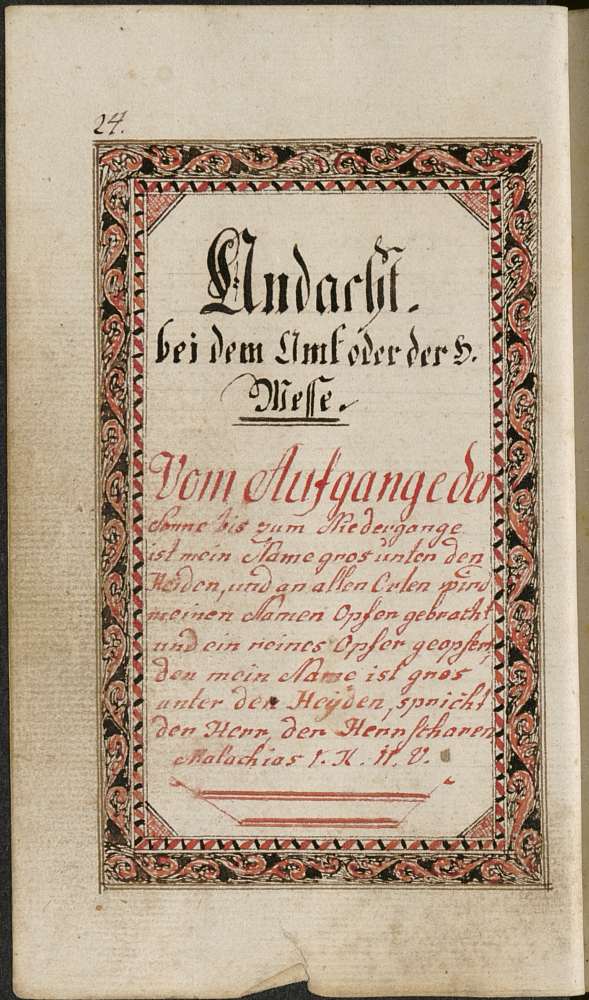 24.
Andacht.
bei dem Amt oder der H.
Messe.
Vom Aufgange der
Sonne bis zum Niedergange
ist mein Name gros unter den
Heiden, und an allen Orten wird
meinen Namen Opfer gebracht
und ein reines Opfer geopfert,
den mein Name ist gros
unter den Heyden, spricht
der Herr, der Herrscharen
Malachias 1. K. 11. V.